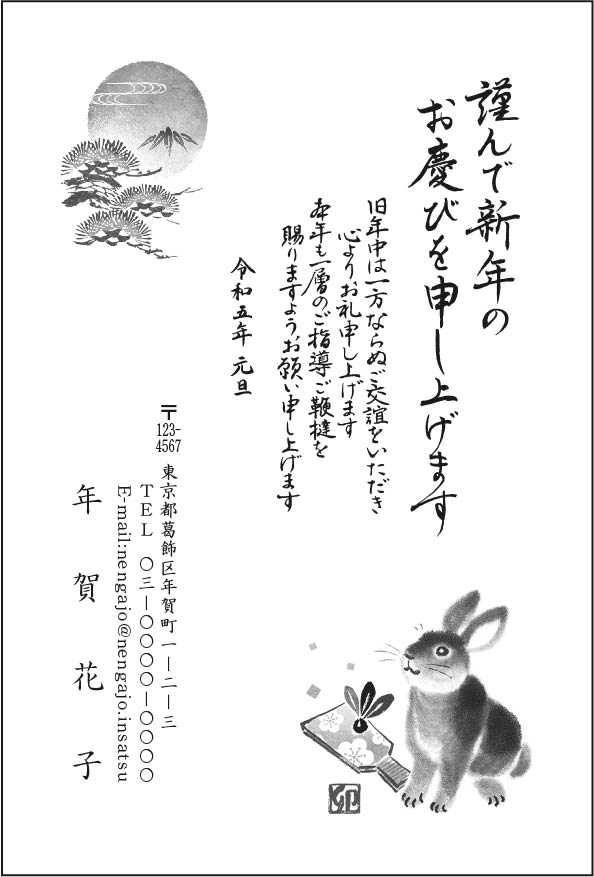 謹んで新年の
お慶びを申し上げます
旧年中は一方ならぬご交誼をいただき
心よりお礼申し上げます
本年も一層のご指導ご鞭撻を
賜りますようお願い申し上げます
令和五年 元旦
〒123-4567
東京都葛飾区年賀町一ー二ー三
TEL 〇三ー〇〇〇〇ー〇〇〇〇
E-mail:nengajo@nengajo.insatsu
年賀花子
卯